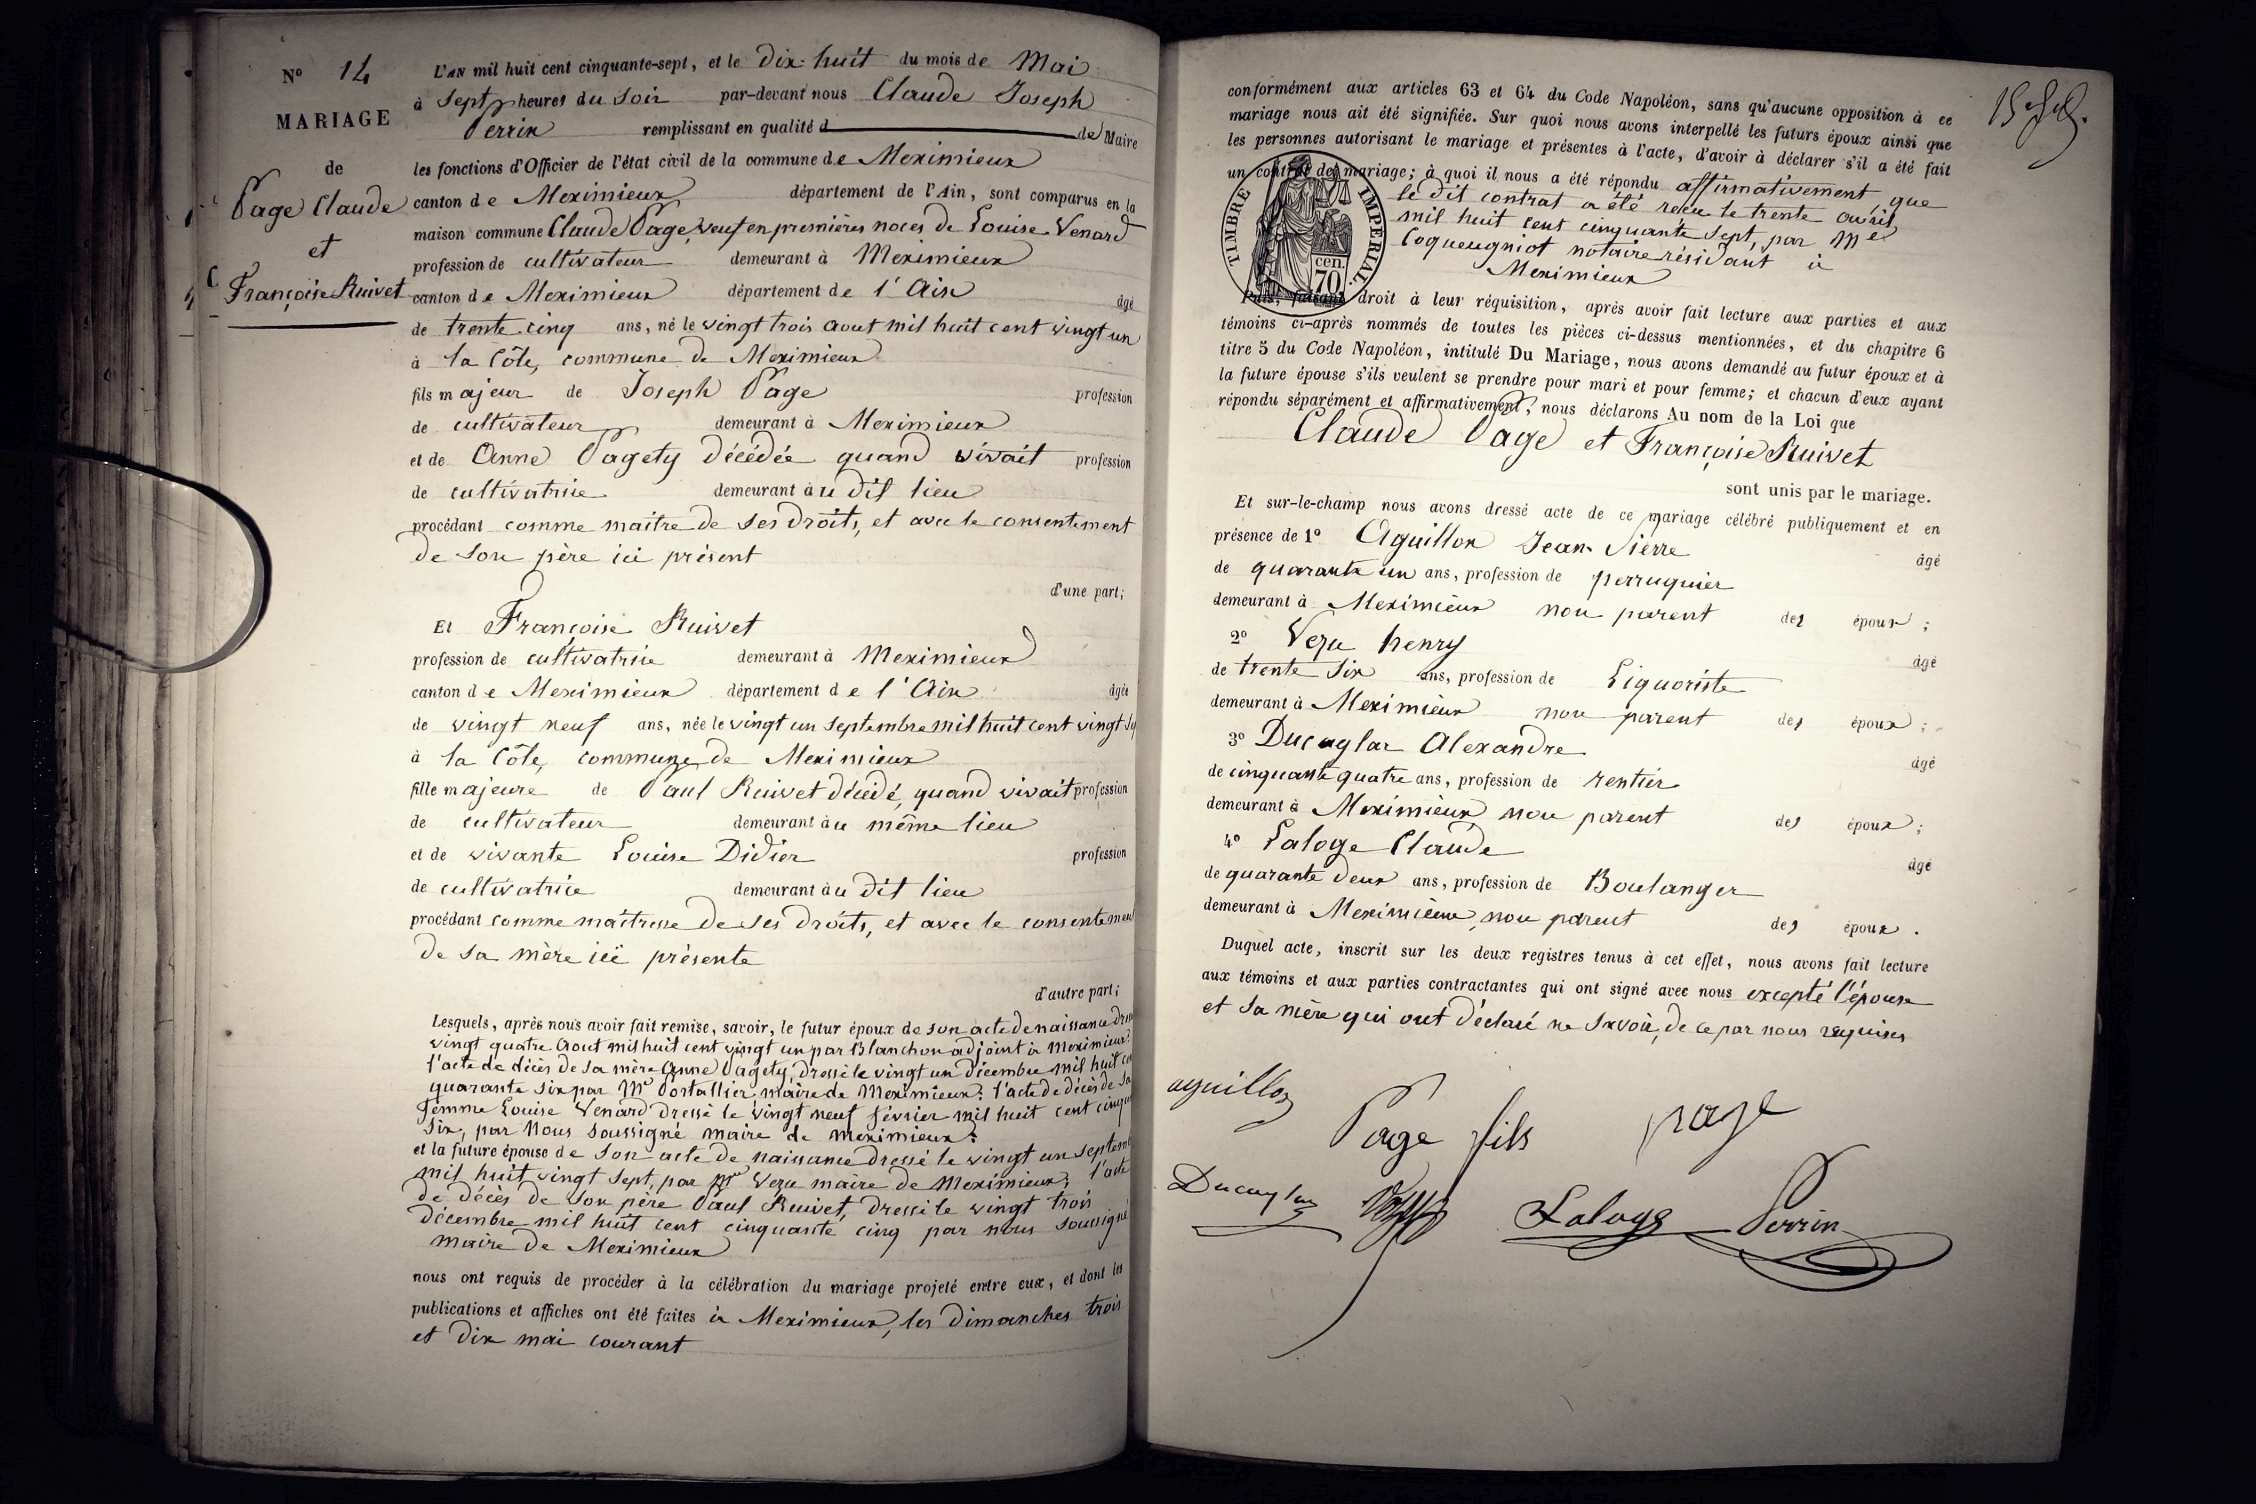 N° 14
MARIAGE
de
Page Claude
et
Françoise Ruivet
L'AN mil huit cent cinquante-sept, et le dix-huit du mois de Mai
à sept heures du soir par-devant nous Claude Joseph
Perrin remplissant en qualité d de Maire
les fonctions d'Officier de l'état civil de la commune de Meximieux
canton de Meximieux département de l'Ain, sont comparus en la
maison commune Claude Page, veuf en premières noces de Louise Venard
profession de cultivateur demeurant à Meximieux
canton de Meximieux département de l'Ain âgé
de trente cinq ans, né le vingt trois aout mil huit cent vingt un
à la Côte, commune de Meximieux
fils majeur de Joseph Page profession
de cultivateur demeurant à Meximieux
et de Anne Pagety décédée quand vivait profession
de cultivatrice demeurant au dit lieu
procédant comme maître de ses droits, et avec le consentement
de son père ici présent
d'une part;
Et Françoise Ruivet
profession de cultivatrice demeurant à Meximieux
canton de Meximieux département de l'Ain âgée
de vingt neuf ans, née le vingt un septembre mil huit cent vingt
à la Côte, commune de Meximieux
fille majeure de Paul Ruivet décédé, quand vivait profession
de cultivateur demeurant au même lieu
et de vivante Louise Didier profession
de cultivatrice demeurant au dit lieu
procédant comme maîtresse de ses droits, et avec le consentement
de sa mère ici présente
d'autre part;
Lesquels, après nous avoir fait remise, savoir, le futur époux de son acte de naissance
vingt quatre Aout mil huit cent vingt un par Blanchon adjoint à Meximieux;
l'acte de décès de sa mère Anne Pagety, dressé le vingt un décembre mil huit
quarante six par Mr Portallier maire de Meximieux; l'acte de décès de sa
femme Louise Venard dressé le vingt neuf février mil huit cent
six, par Nous soussigné maire de meximieux;
et la future épouse de son acte de naissance dressé le vingt un
mil huit vingt sept, par Mr Vezu maire de Meximieux; l'acte
de décès de son père Paul Ruivet, dressé le vingt trois
décembre mil huit cent cinquante cinq par nous soussigné
maire de Meximieux
nous ont requis de procéder à la célébration du mariage projeté entre eux, et dont les
publications et affiches ont été faites à Meximieux, les dimanches trois
et dix mai courant
conformément aux articles 63 et 64 du Code Napoléon, sans qu'aucune opposition à ce
mariage nous ait été signifiée. Sur quoi nous avons interpellé les futurs époux ainsi que
les personnes autorisant le mariage et présentes à l'acte, d'avoir à déclarer s'il a été fait
un contrat de mariage; à quoi il nous a été répondu affirmativement, que
le dit contrat a été reçu le trente avril
mil huit cent cinquante sept, par Me
Coqueugniot notaire résidant à
Meximieux
TIMBRE IMPERIAL.
cen.
70
Puis, faisant droit à leur réquisition, après avoir fait lecture aux parties et aux
témoins ci-après nommés de toutes les pièces ci-dessus mentionnées, et du chapitre 6
titre 5 du Code Napoléon, intitulé Du Mariage, nous avons demandé au futur époux et à
la future épouse s'ils veulent se prendre pour mari et pour femme; et chacun d'eux ayant
répondu séparément et affirmativement, nous déclarons Au nom de la Loi que
Claude Page et Françoise Ruivet
sont unis par le mariage.
Et sur-le-champ nous avons dressé acte de ce mariage célébré publiquement et en
présence de 1° Aguillon Jean-Pierre âgé
de quarante un ans, profession de perruquier
demeurant à Meximieux non parent des époux;
2° Vezu henry âgé
de trente six ans, profession de Liquoriste
demeurant à Meximieux non parent des époux;
3° Ducaylar Alexandre âgé
de cinquante quatre ans, profession de rentier
demeurant à Meximieux non parent des époux;
4° Laloge Claude âgé
de quarante deux ans, profession de Boulanger
demeurant à Meximieux, non parent des époux.
Duquel acte, inscrit sur les deux registres tenus à cet effet, nous avons fait lecture
aux témoins et aux parties contractantes qui ont signé avec nous excepté l'épouse
et sa mère qui ont déclaré ne savoir, de ce par nous requises
aguillon
Page fils page
Ducaylar Laloge Perrin